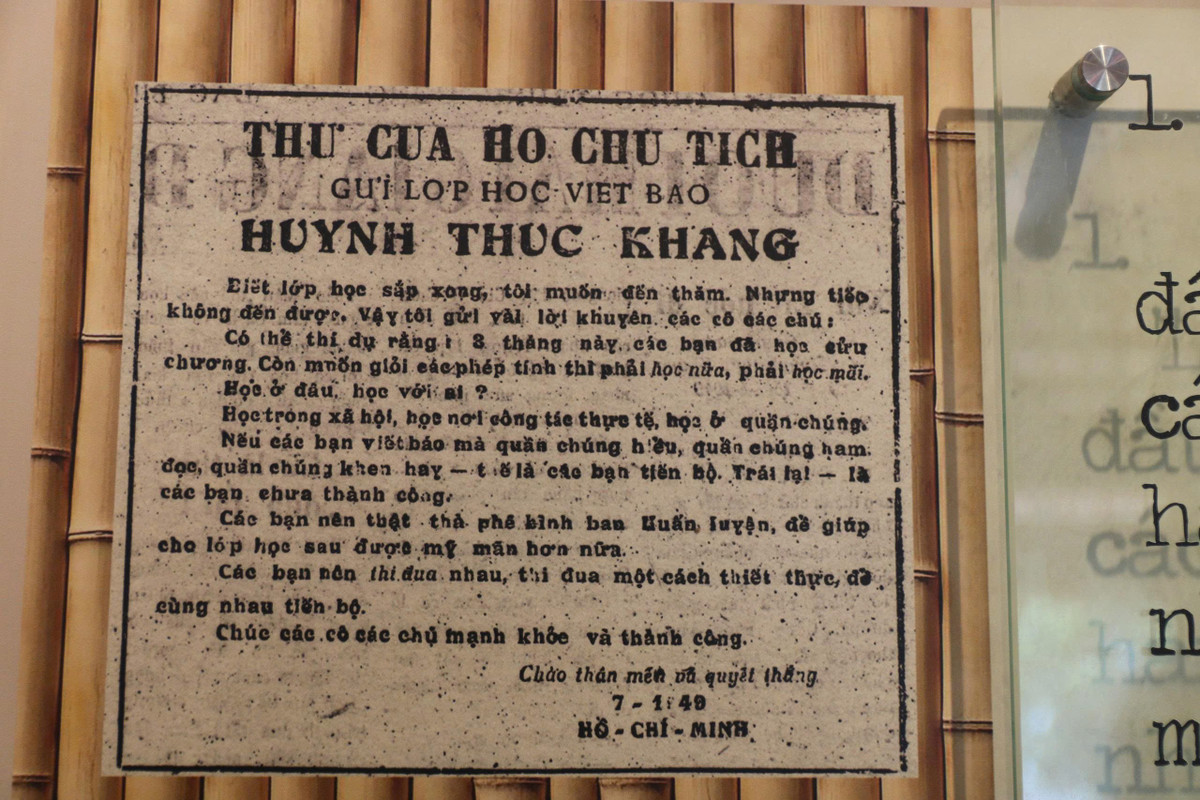 THƯ CUA HO CHU TICH
GƯI LƠP HOC VIET BAO
HUYNH THUC KHANG
Biết lớp học sắp xong, tôi muốn đến thăm. Nhưng tiếc
không đến được. Vậy tôi gửi vài lời khuyên các cô các chú:
Có thể thí dụ rằng: 3 tháng này các bạn đã học cửu
chương. Còn muốn giỏi các phép tính thì phải học nữa, phải học mãi.
Học ở đâu, học với ai ?
Học trong xã hội, học nơi công tác thực tế, học ở quần chúng.
Nếu các bạn viết báo mà quần chúng hiểu, quần chúng ham
đọc, quần chúng khen hay — thế là các bạn tiến bộ. Trái lại — là
các bạn chưa thành công.
Các bạn nên thật thà phê bình ban Huấn luyện, để giúp
cho lớp học sau được mỹ mãn hơn nữa.
Các bạn nên thi đua nhau, thi đua một cách thiết thực, để
cùng nhau tiến bộ.
Chúc các cô các chú mạnh khỏe và thành công.
Chào thân mến và quyết thắng
7 - 1949
HỒ - CHÍ - MINH
1.